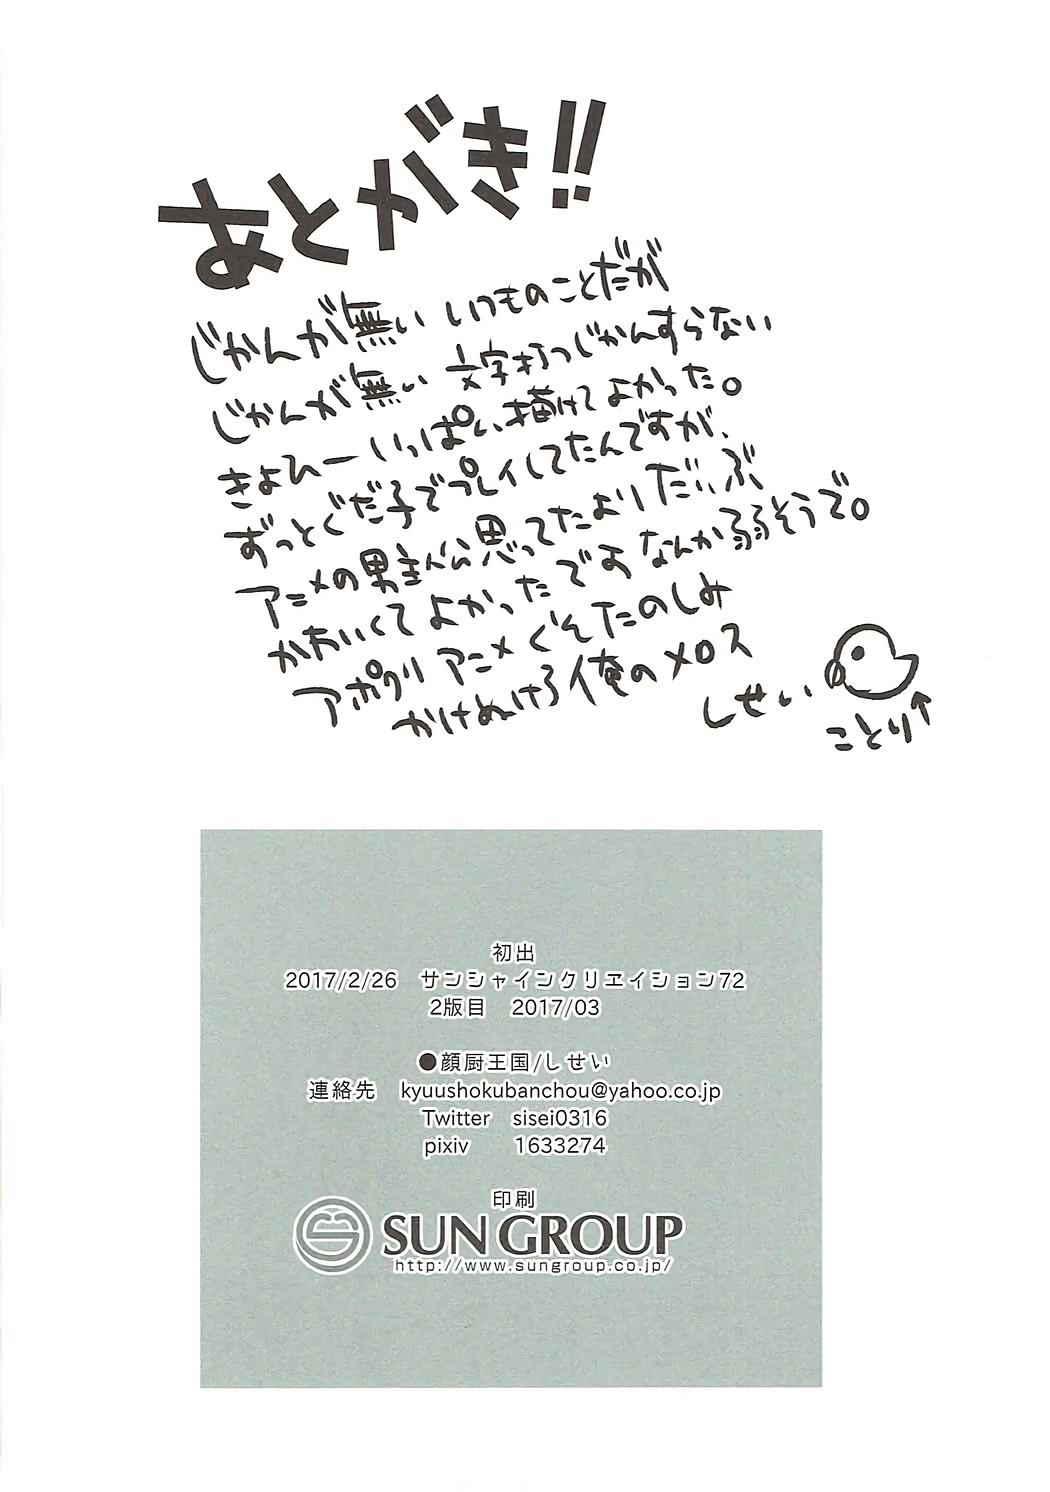 あとがき!!
じかんが無い いつものことだが
じかんが無い 文字打つじかんすらない
きよひーいっぱい描けてよかった。
ずっとぐだ子でプレイしてたんですが、
アニメの男主人公思ってたよりだいぶ
かわいくてよかったです なんか弱そうで。
アポクリアニメぐぞたのしみ
かけぬけろ俺のメロス
しせい
ことり↑
初出
2017/2/26 サンシャインクリエイション72
2版目 2017/03
●顔厨王国/しせい
連絡先 kyuushokubanchou@yahoo.co.jp
Twitter sisei0316
pixiv 1633274
印刷
SUN GROUP
http://www.sungroup.co.jp/